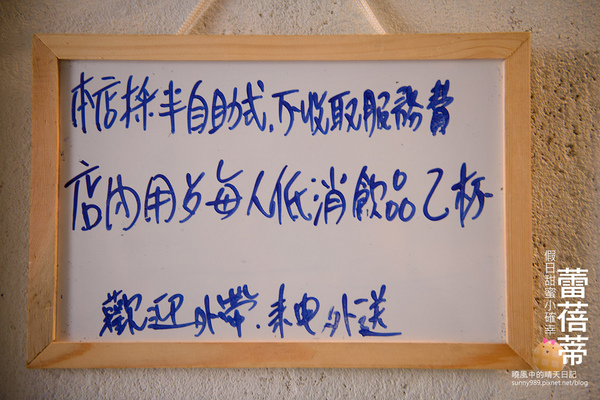 本店採半自助式,不收取服務費
店內用步每人低消飲品乙杯
歡迎外帶.來電外送
假日甜蜜小確幸
蕾蓓蒂
曉風中的晴天日記
sunny989.pixnet.net/blog